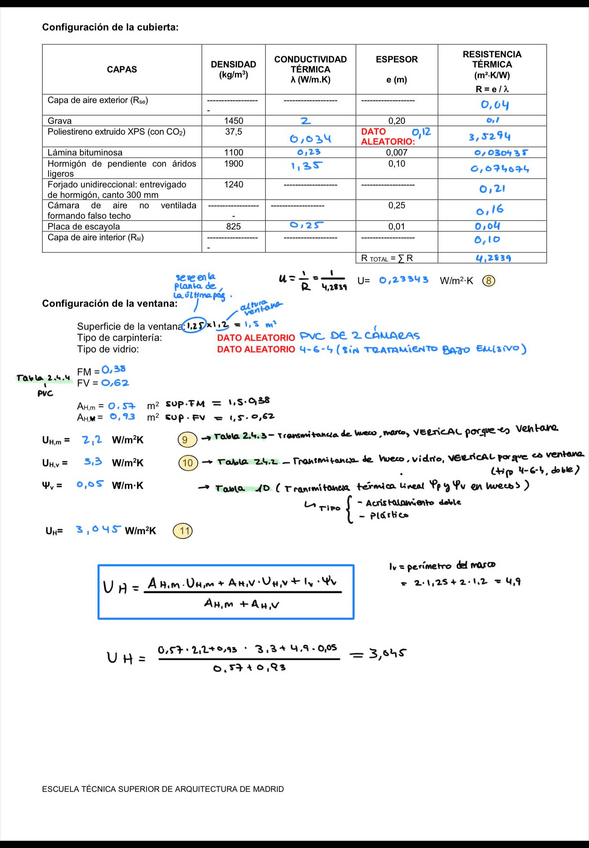 Configuración de la cubierta:
CAPAS DENSIDAD (kg/m³) CONDUCTIVIDAD TÉRMICA λ (W/m.K) ESPESOR e (m) RESISTENCIA TÉRMICA (m²·K/W) R = e / λ
Capa de aire exterior (Rse) ------------------- ------------------- ------------------- 0,04
Grava 1450 2 0,20 0,1
Poliestireno extruido XPS (con CO₂) 37,5 0,034 DATO ALEATORIO: 0,12 3,5294
Lámina bituminosa 1100 0,23 0,007 0,030435
Hormigón de pendiente con áridos ligeros 1900 1,35 0,10 0,074074
Forjado unidireccional: entrevigado de hormigón, canto 300 mm 1240 ------------------- ------------------- 0,21
Cámara de aire no ventilada formando falso techo ------------------- ------------------- 0,25 0,16
Placa de escayola 825 0,25 0,01 0,04
Capa de aire interior (Rsi) ------------------- ------------------- ------------------- 0,10
R TOTAL = ∑ R 4,2839
u = 1/R = 1/4,2839 U= 0,23343 W/m²·K 8
se ve en la planta de la última pág.
altura ventana
Configuración de la ventana:
Superficie de la ventana: 1,25 x 1,2 = 1,5 m²
Tipo de carpintería: DATO ALEATORIO PVC DE 2 CÁMARAS
Tipo de vidrio: DATO ALEATORIO 4-6-4 (SIN TRATAMIENTO BAJO EMISIVO)
Tabla 2.4.4
PVC
FM = 0,38
FV = 0,62
AH,m = 0,57 m² SUP·FM = 1,5·0,38
AH,v = 0,93 m² SUP·FV = 1,5·0,62
UH,m = 2,2 W/m²K 9 → Tabla 2.4.3 - Transmitancia de hueco, marco, VERTICAL porque es ventana
UH,v = 3,3 W/m²K 10 → Tabla 2.4.2 - Transmitancia de hueco, vidrio, VERTICAL porque es ventana
(tip 4-6-4, doble)
Ψv = 0,05 W/m·K → Tabla 10 (Transmitancia térmica lineal Ψp y Ψv en huecos)
↳ TIPO { - Acristalamiento doble
- Plástico
UH= 3,045 W/m²K 11
lv = perímetro del marco
= 2·1,25 + 2·1,2 = 4,9
UH = AH,m · UH,m + AH,v · UH,v + lv · Ψv
AH,m + AH,v
UH = 0,57·2,2+0,93 · 3,3 + 4,9 · 0,05 = 3,045
0,57 + 0,93
ESCUELA TÉCNICA SUPERIOR DE ARQUITECTURA DE MADRID